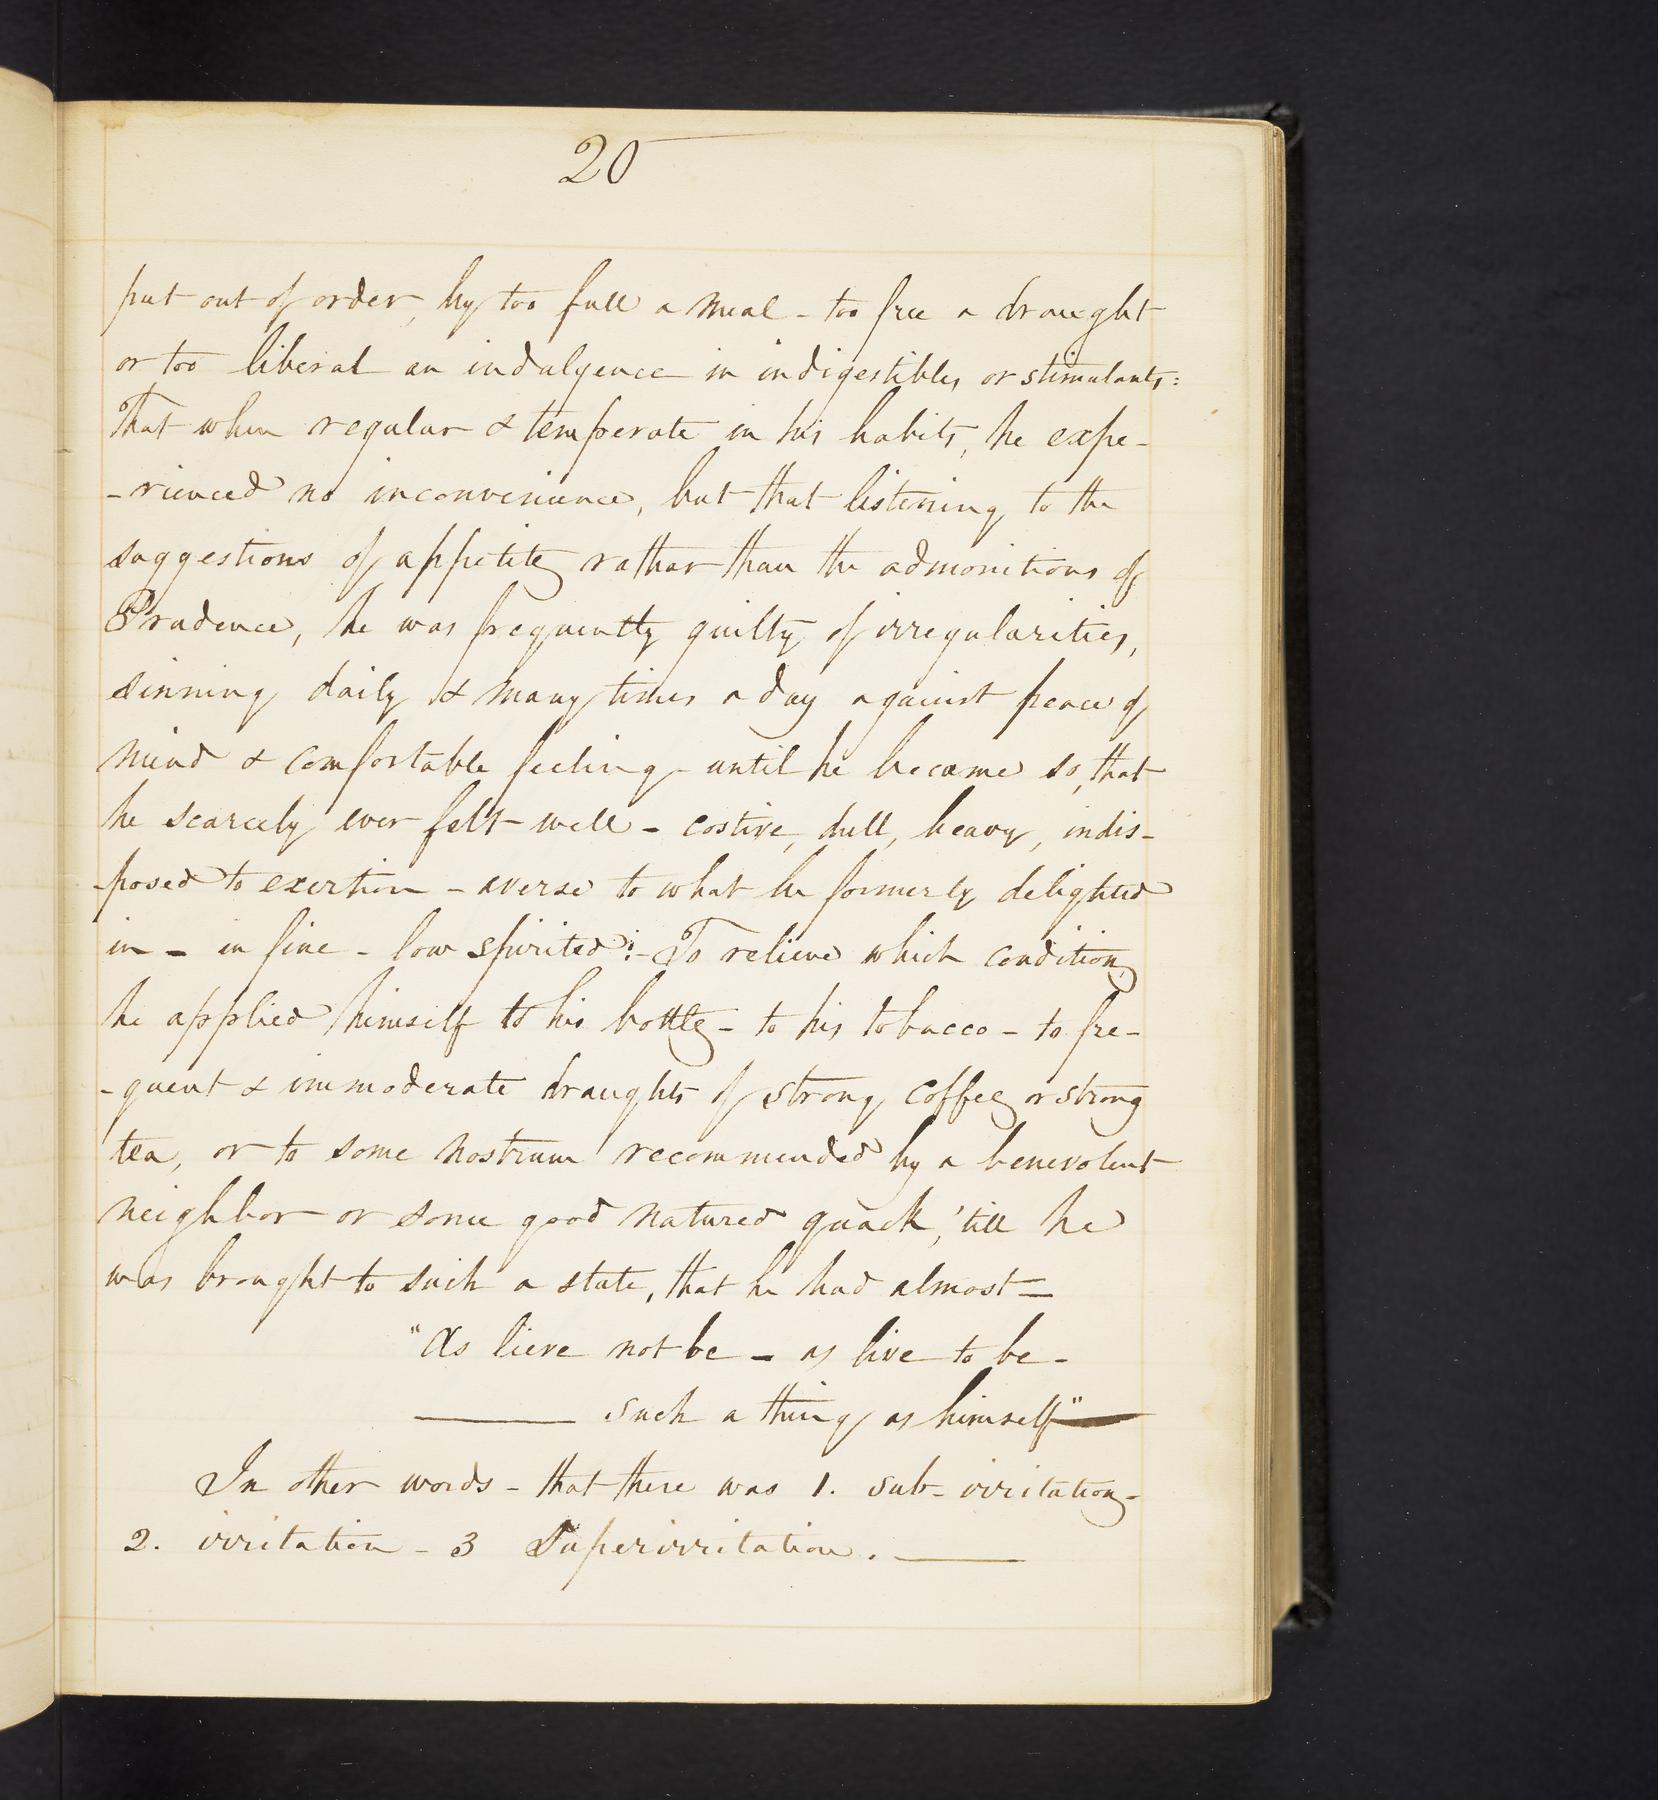 20
put out of order, by too full a meal - too free a draught
or too liberal an indulgence in indigestibles or stimulants:
That when regular & temperate in his habits, he expe-
-rienced no inconvenience, but that listening to the
suggestions of appetite rather than the admonitions of
Prudence, he was frequently guilty of irregularities,
sinning daily & many times a day against peace of
mind & comfortable feeling - until he became so, that
he scarcely ever felt well - costive, dull, heavy, indis-
-posed to exertion - averse to what he formerly delighted
in - in fine - low spirited: - To relieve which condition
he applied himself to his bottle - to his tobacco - to fre-
-quent & immoderate draughts of strong coffee or strong
tea, or to some nostrum recommended by a benevolent
neighbor or some good natured quack, 'till he
was brought to such a state, that he had almost -
"As lieve not be - as live to be -
such a thing as himself"
In other words - that there was 1. sub-irritation -
2. irritation - 3 Superirritation.